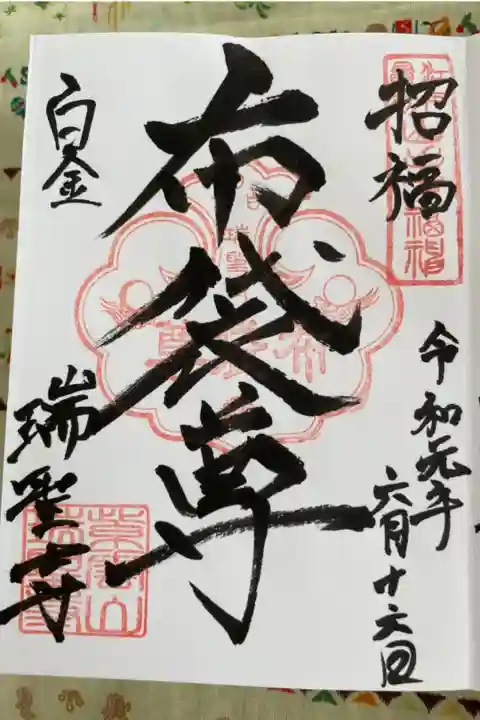 招福
令和元年
六月十六日
布袋尊
白金
瑞聖寺
紫雲山